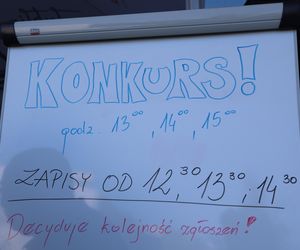 KONKURS!
godz. 13⁰⁰, 14⁰⁰, 15⁰⁰
ZAPISY OD 12³⁰, 13³⁰, 14³⁰
Decyduje kolejność zgłoszeń!